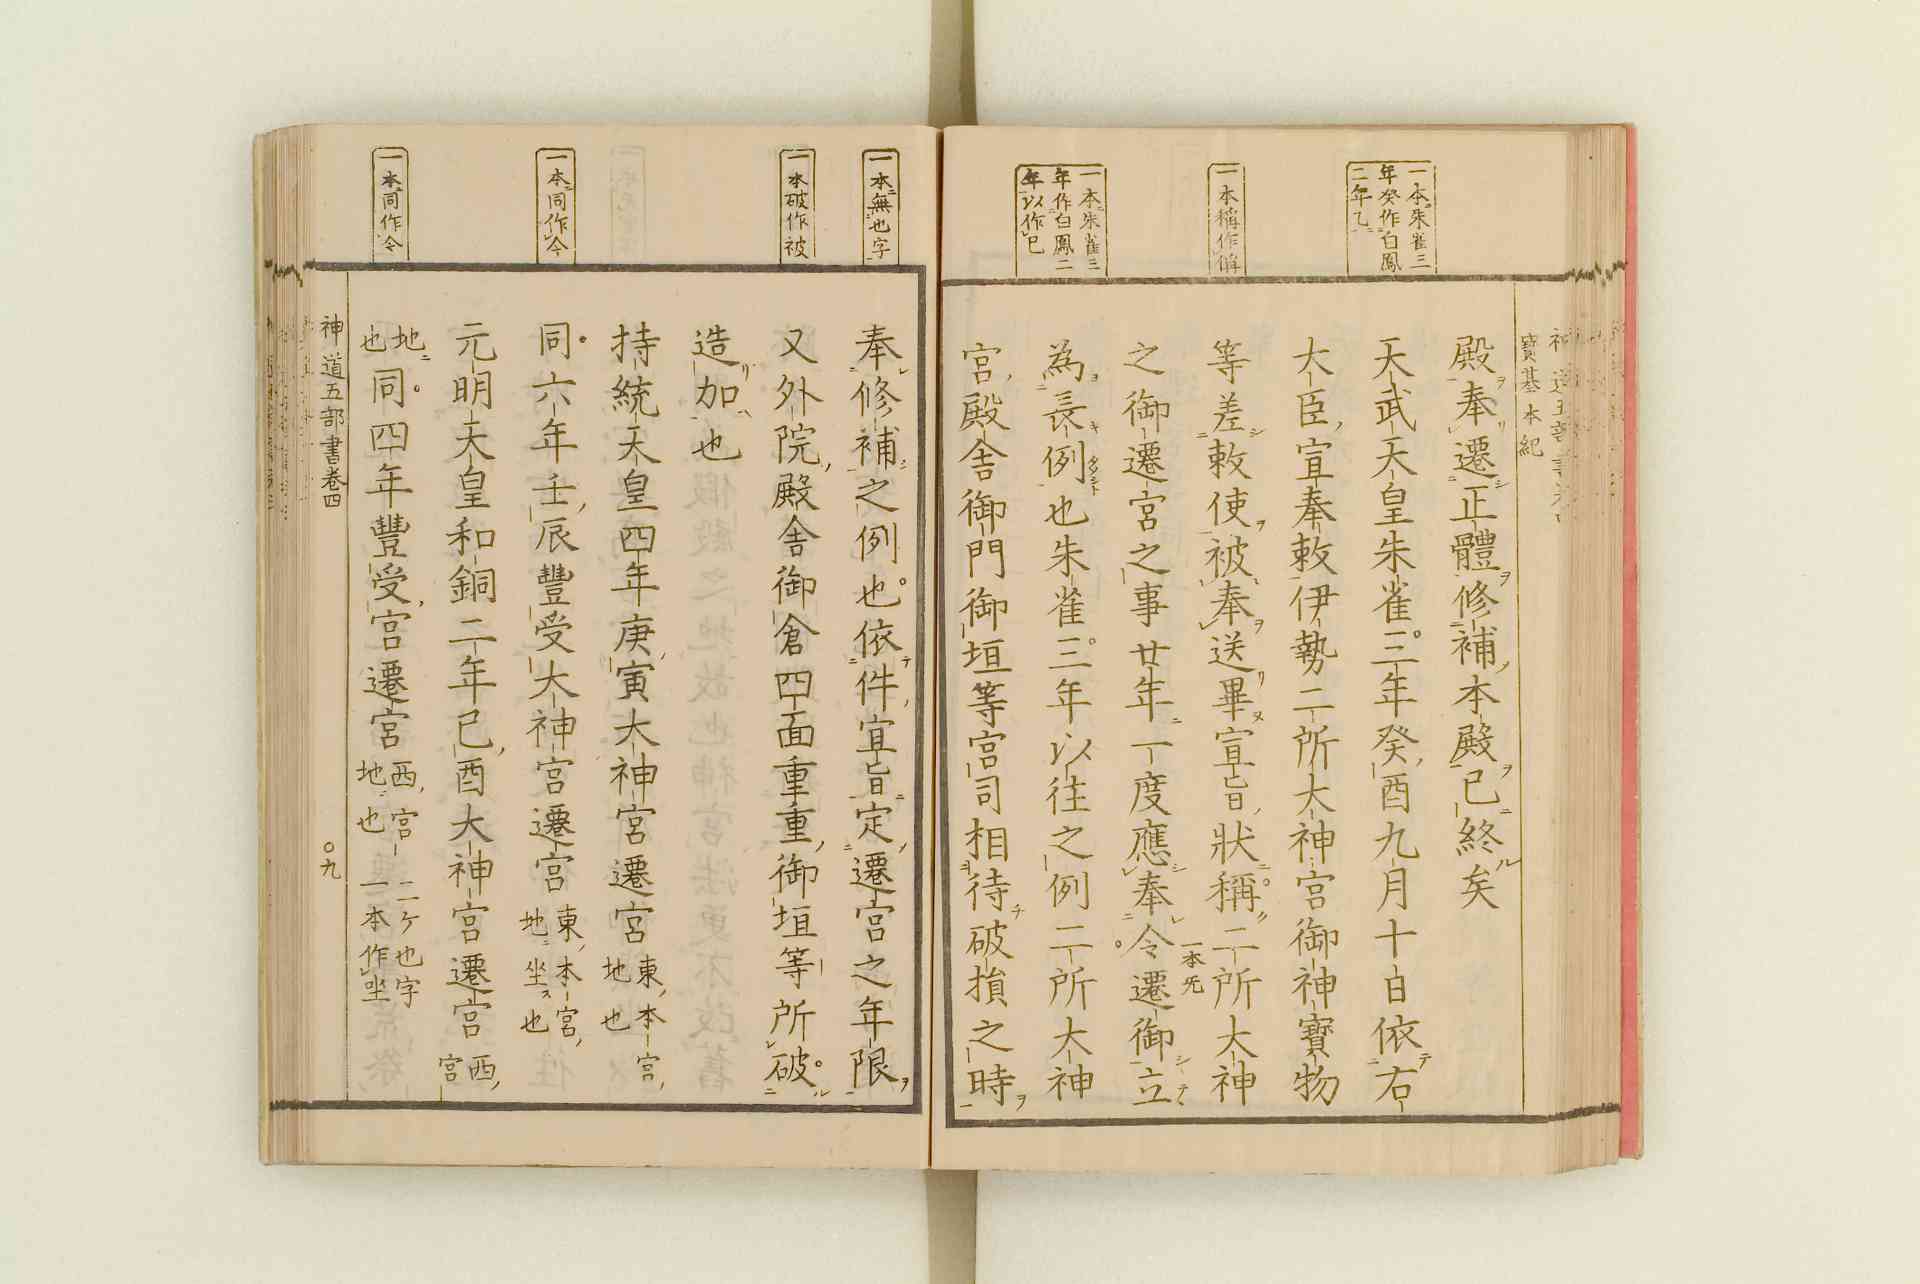 一本朱雀三
年癸作白鳳
二年乙
一本稱作偁
一本朱雀三
年作白鳳二
年以作巳
寶基本紀
殿奉遷正體修補本殿已終矣
天武天皇朱雀三年癸酉九月十日依右
大臣宣奉敕伊勢二所大神宮御神寶物
等差敕使被奉送畢宣旨狀稱二所大神
一本旡
之御遷宮之事廿年一度應奉令遷御立
為長例也朱雀三年以往之例二所大神
宮殿舎御門御垣等宮司相待破損之時
一本無也字
一本破作被
一本同作令
一本同作令
奉修補之例也依件宣旨定遷宮之年限
又外院殿舎御倉四面重重御垣等所破
造加也
持統天皇四年庚寅大神宮遷宮東本宮
地也
同六年壬辰豐受大神宮遷宮東本宮
地坐也
元明天皇和銅二年己酉大神宮遷宮西
宮
地
也同四年豐受宮遷宮西宮
地也
二ケ也字
一本作坐
神道五部書卷四
九